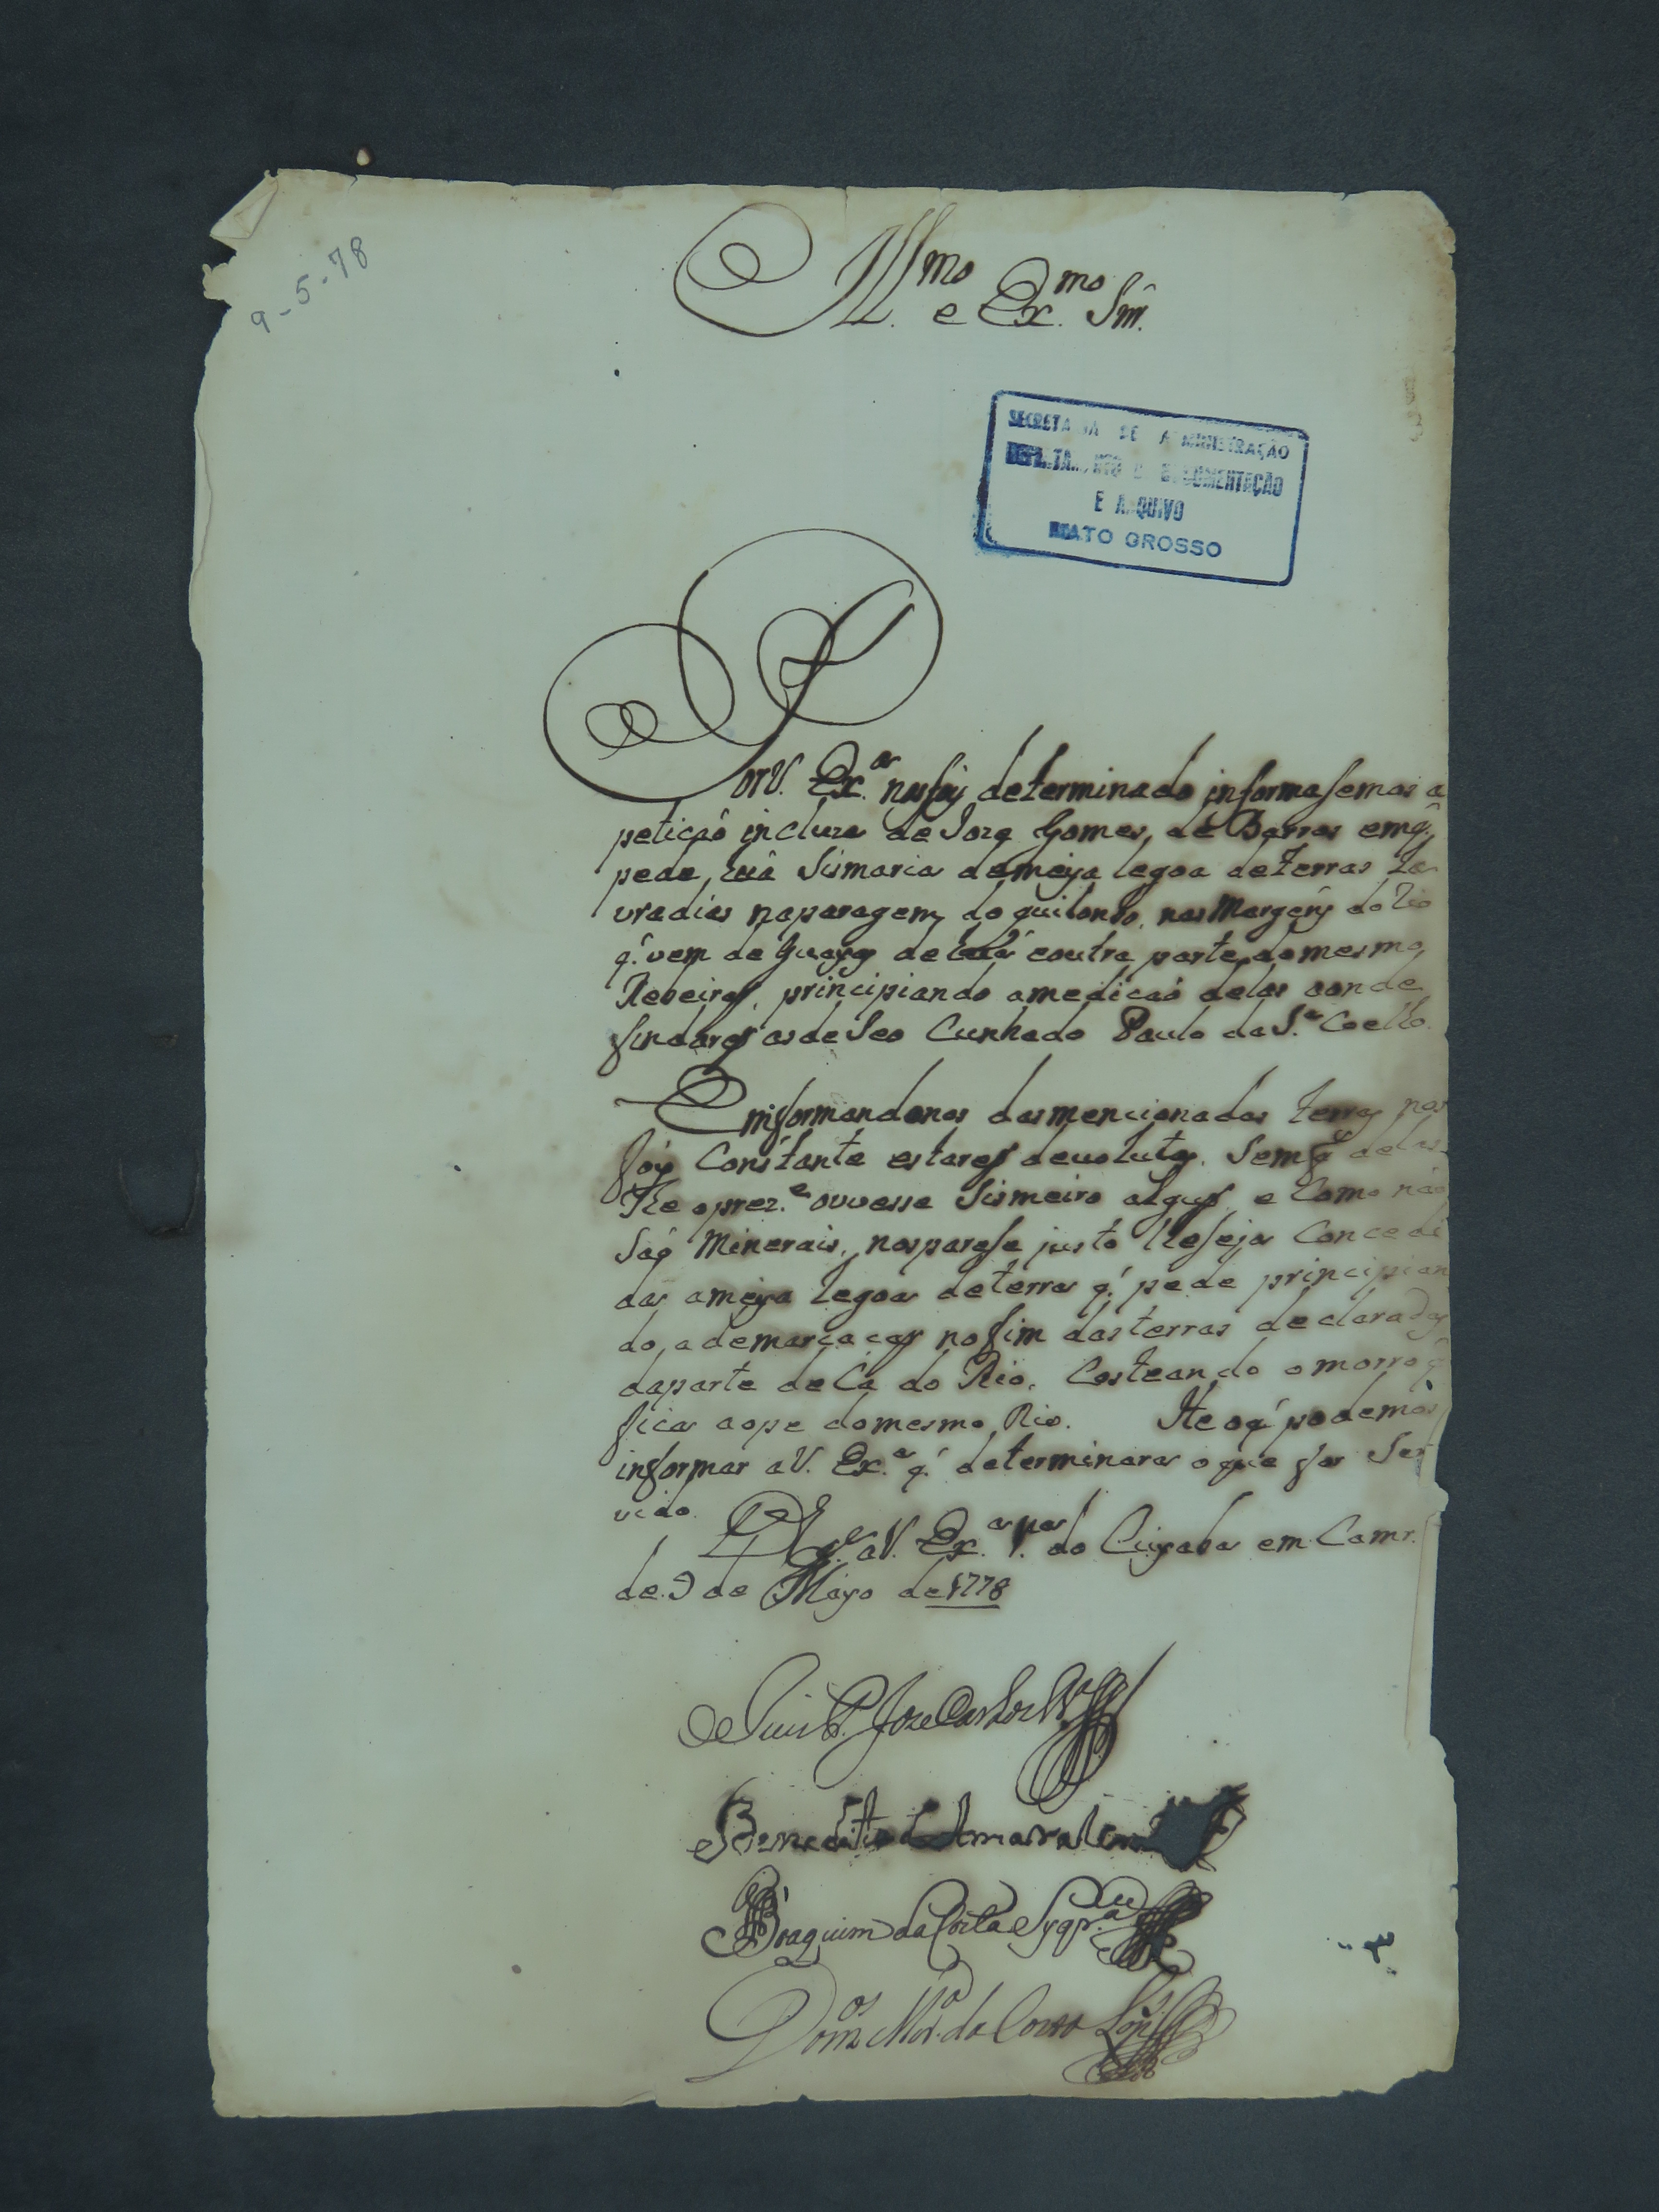 9-5-78
Ill.mo e Ex.mo Snr.
SECRETARIA DE ADMINISTRAÇÃO
DEPARTAMENTO DE DOCUMENTAÇÃO
E ARQUIVO
MATO GROSSO
Por V. Ex.a nos foy determinado informasemos a
petição incluza de Joze Gomes, de Barros em q.
pede, huã Sismaria de meya legoa de terras La
vradias na paragem do quilonbo, nas Margẽs do Rio
q. vem de de huã e outra parte do mesmo
Rebeirão, principiando a medicaõ delas aonde
findarẽ as de Seo Cunhado Paulo da S.a Coelho.
E informandonos das mencionadas terras nos
foy Constante estarẽ devolutas, Sem q delas
the o prez.e ouvesse Sismeiro algũ, e Como não
Saõ Minerais, nos parese justo lhe seja Concedi
da, a meya legoa de terra q. pede principian
do, a demarcação no fim das terras declaradas
da parte de Cá do Rio, Costeando o morro q
fica ao pe do mesmo, Rio. He o q podemos
informar a V. Ex.a q. determinara o que for Ser
vido.
D.s g.e a V. Ex.a do Cuyaba em Camr.
de 9 de Mayo de 1778
Luis P. Joze Carlos P.ra
Benedito do Amaral
Joaquim da Costa Syqr.a
Dom.os da